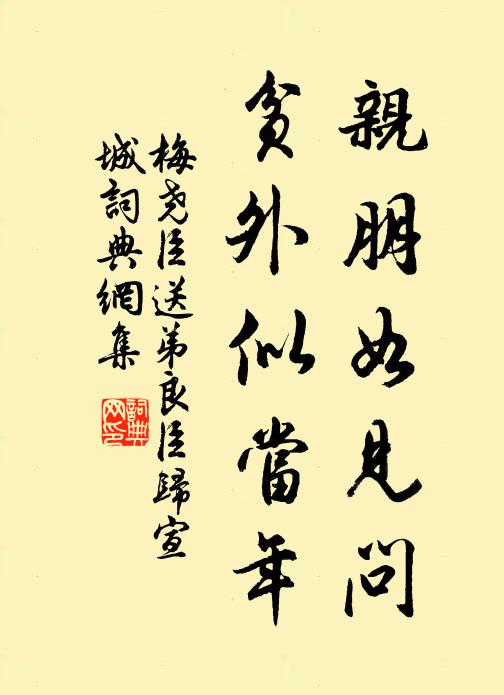 親朋如見問
貧外似當年
梅堯臣送弟良臣歸宣
城詞典網集
詞典
网印